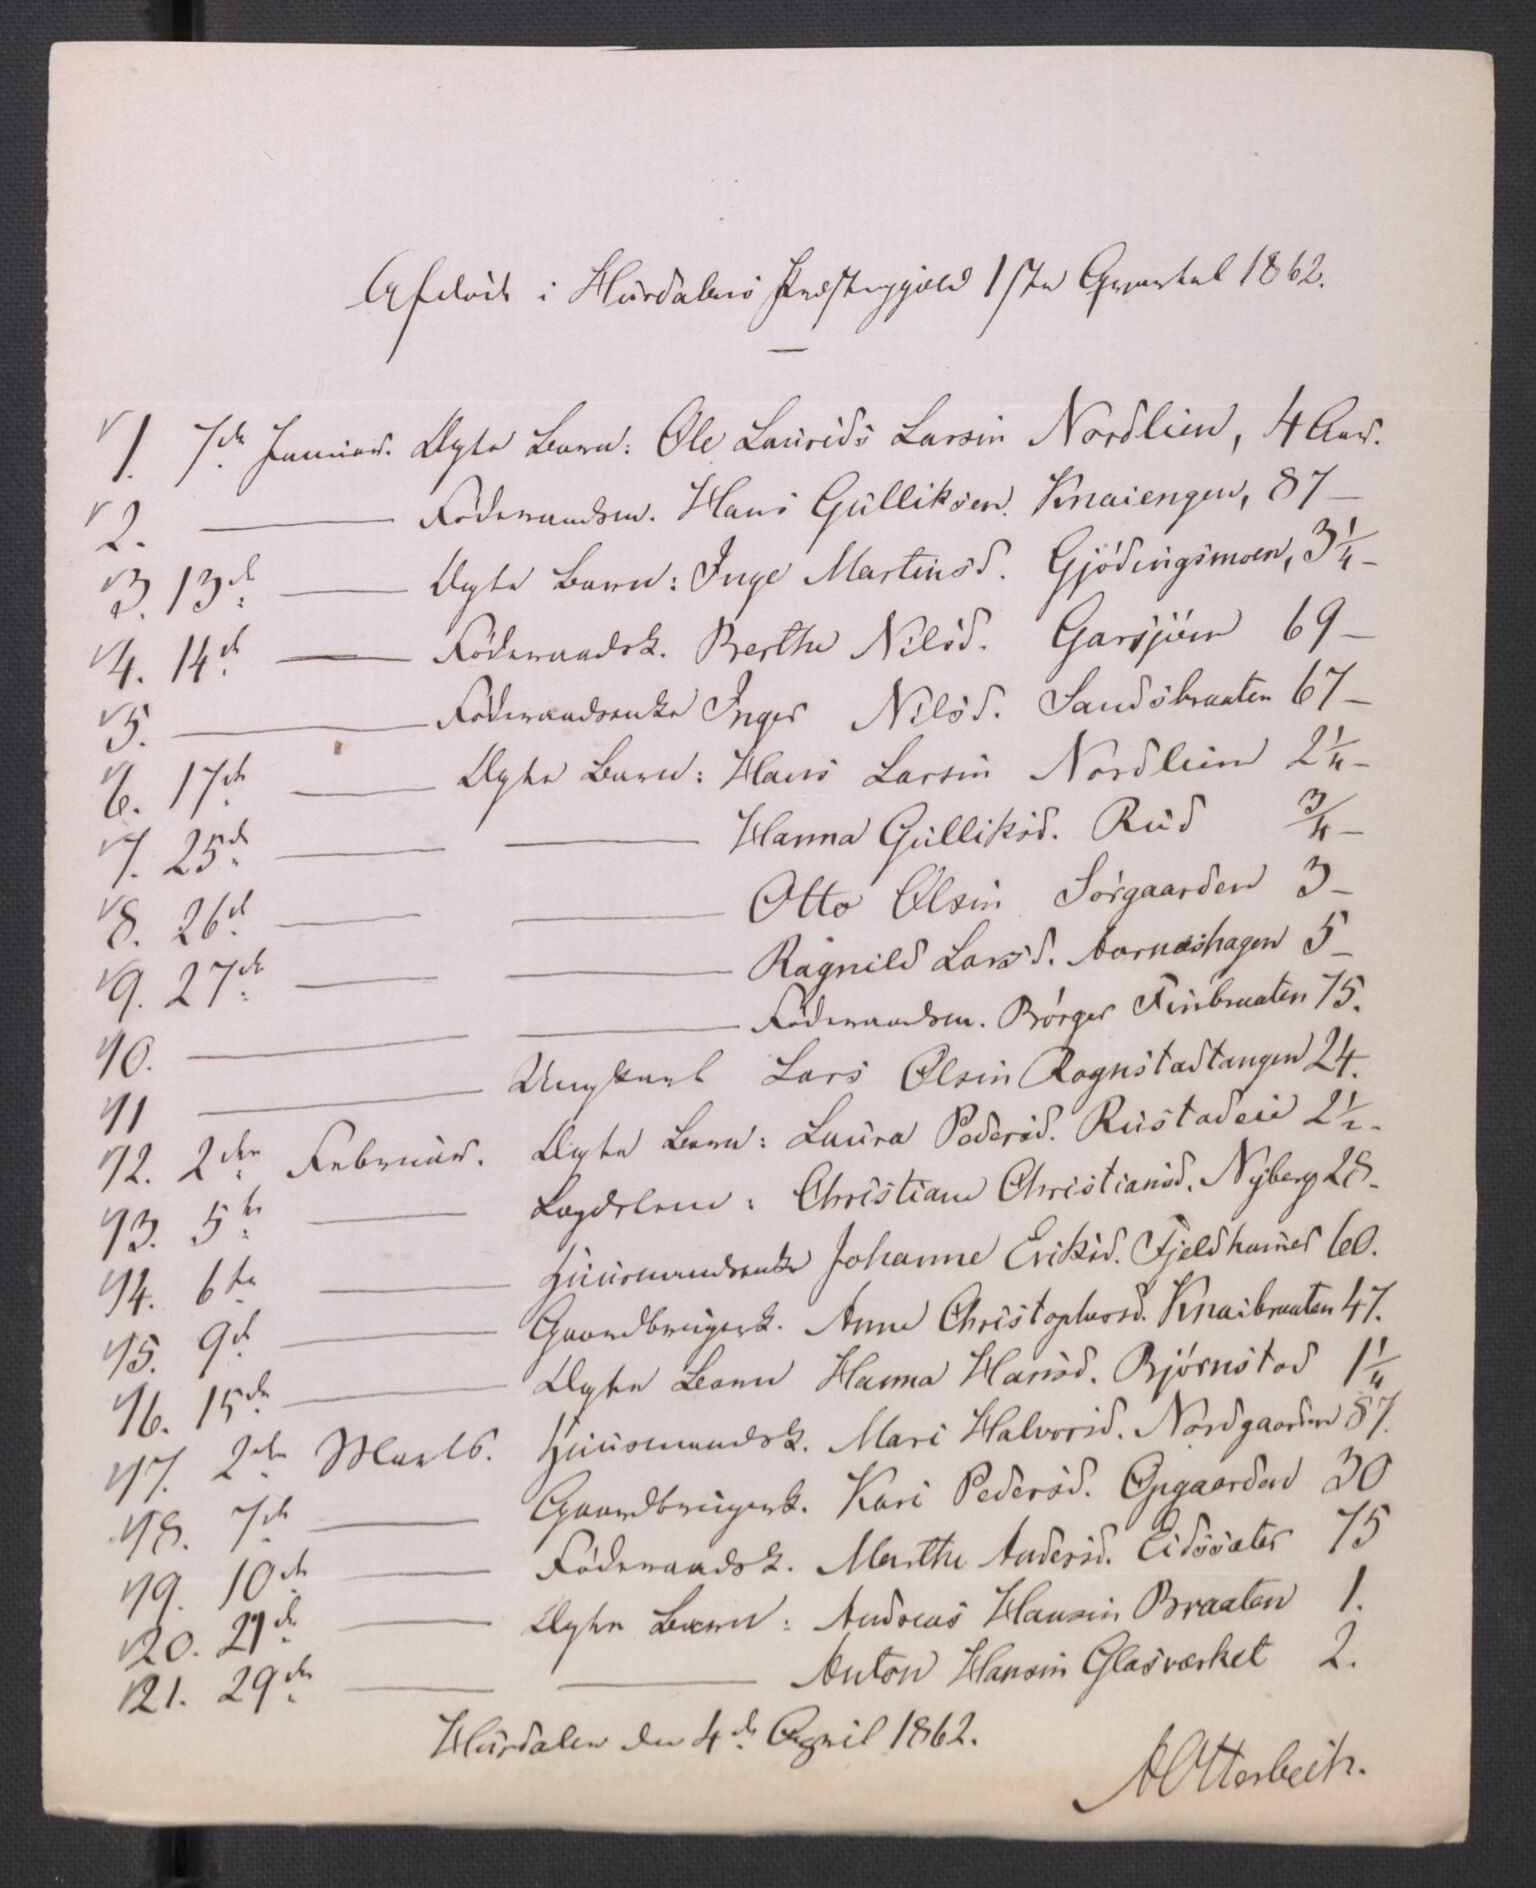 Afdøde i Hurdalens Præstegjeld 1ste Qvartal 1862.
1. 7de Januar. Ægte Barn: Ole Laurids Larsen Nordlien, 4 Aar.
2. — Føderaadsm. Hans Gulliksen. Knaiengen, 87 –
3. 13de — Ægte Barn: Inge Martinsd. Gjødingsmoen, 3 1/4 –
4. 14de — Føderaadsk. Berthe Nilsd. Garsjøen 69 –
5. — Føderaadsenke Inger Nilsd. Sandsbraaten 67 –
6. 17de — Ægte Barn: Hans Larsen Nordlien 2 1/4 –
7. 25de — — Hanna Gulliksd. Rud 3/4 –
8. 26de — — Otto Olsen Sørgaarden 3 –
9. 27de — — Ragnild Larsd. Aarnæshagen 5 –
10. — — Føderaadsm. Børger Finbraaten 75.
11 — Ungkarl Lars Olsen Rognstadtangen 24.
12. 2den Februar. Ægte Barn: Laura Pedersd. Rustadeie 2 1/2 –
13. 5te — Lægdslem: Christiane Christiansd. Nyberg 28 –
14. 6te — Huusmandsenke Johanne Eriksd. Fjeldhamer 60.
15. 9de — Gaardbrugerk. Anne Christophersd. Knaibraaten 47.
16. 15de — Ægte Barn Hanna Hansd. Bjørnstad 1 1/4
17. 2den Marts. Huusmandsk. Mari Halvorsd. Nordgaarden 87.
18. 7de — Gaardbrugerk. Kari Pedersd. Opgaarden 30
19. 10de — Føderaadsk. Marthe Andersd. Eidssæter 75
20. 21de — Ægte Barn: Andreas Hansen Braaten 1.
21. 29de — — Anton Hansen Glasværket 2.
Hurdalen den 4de April 1862.
A Otterbech.